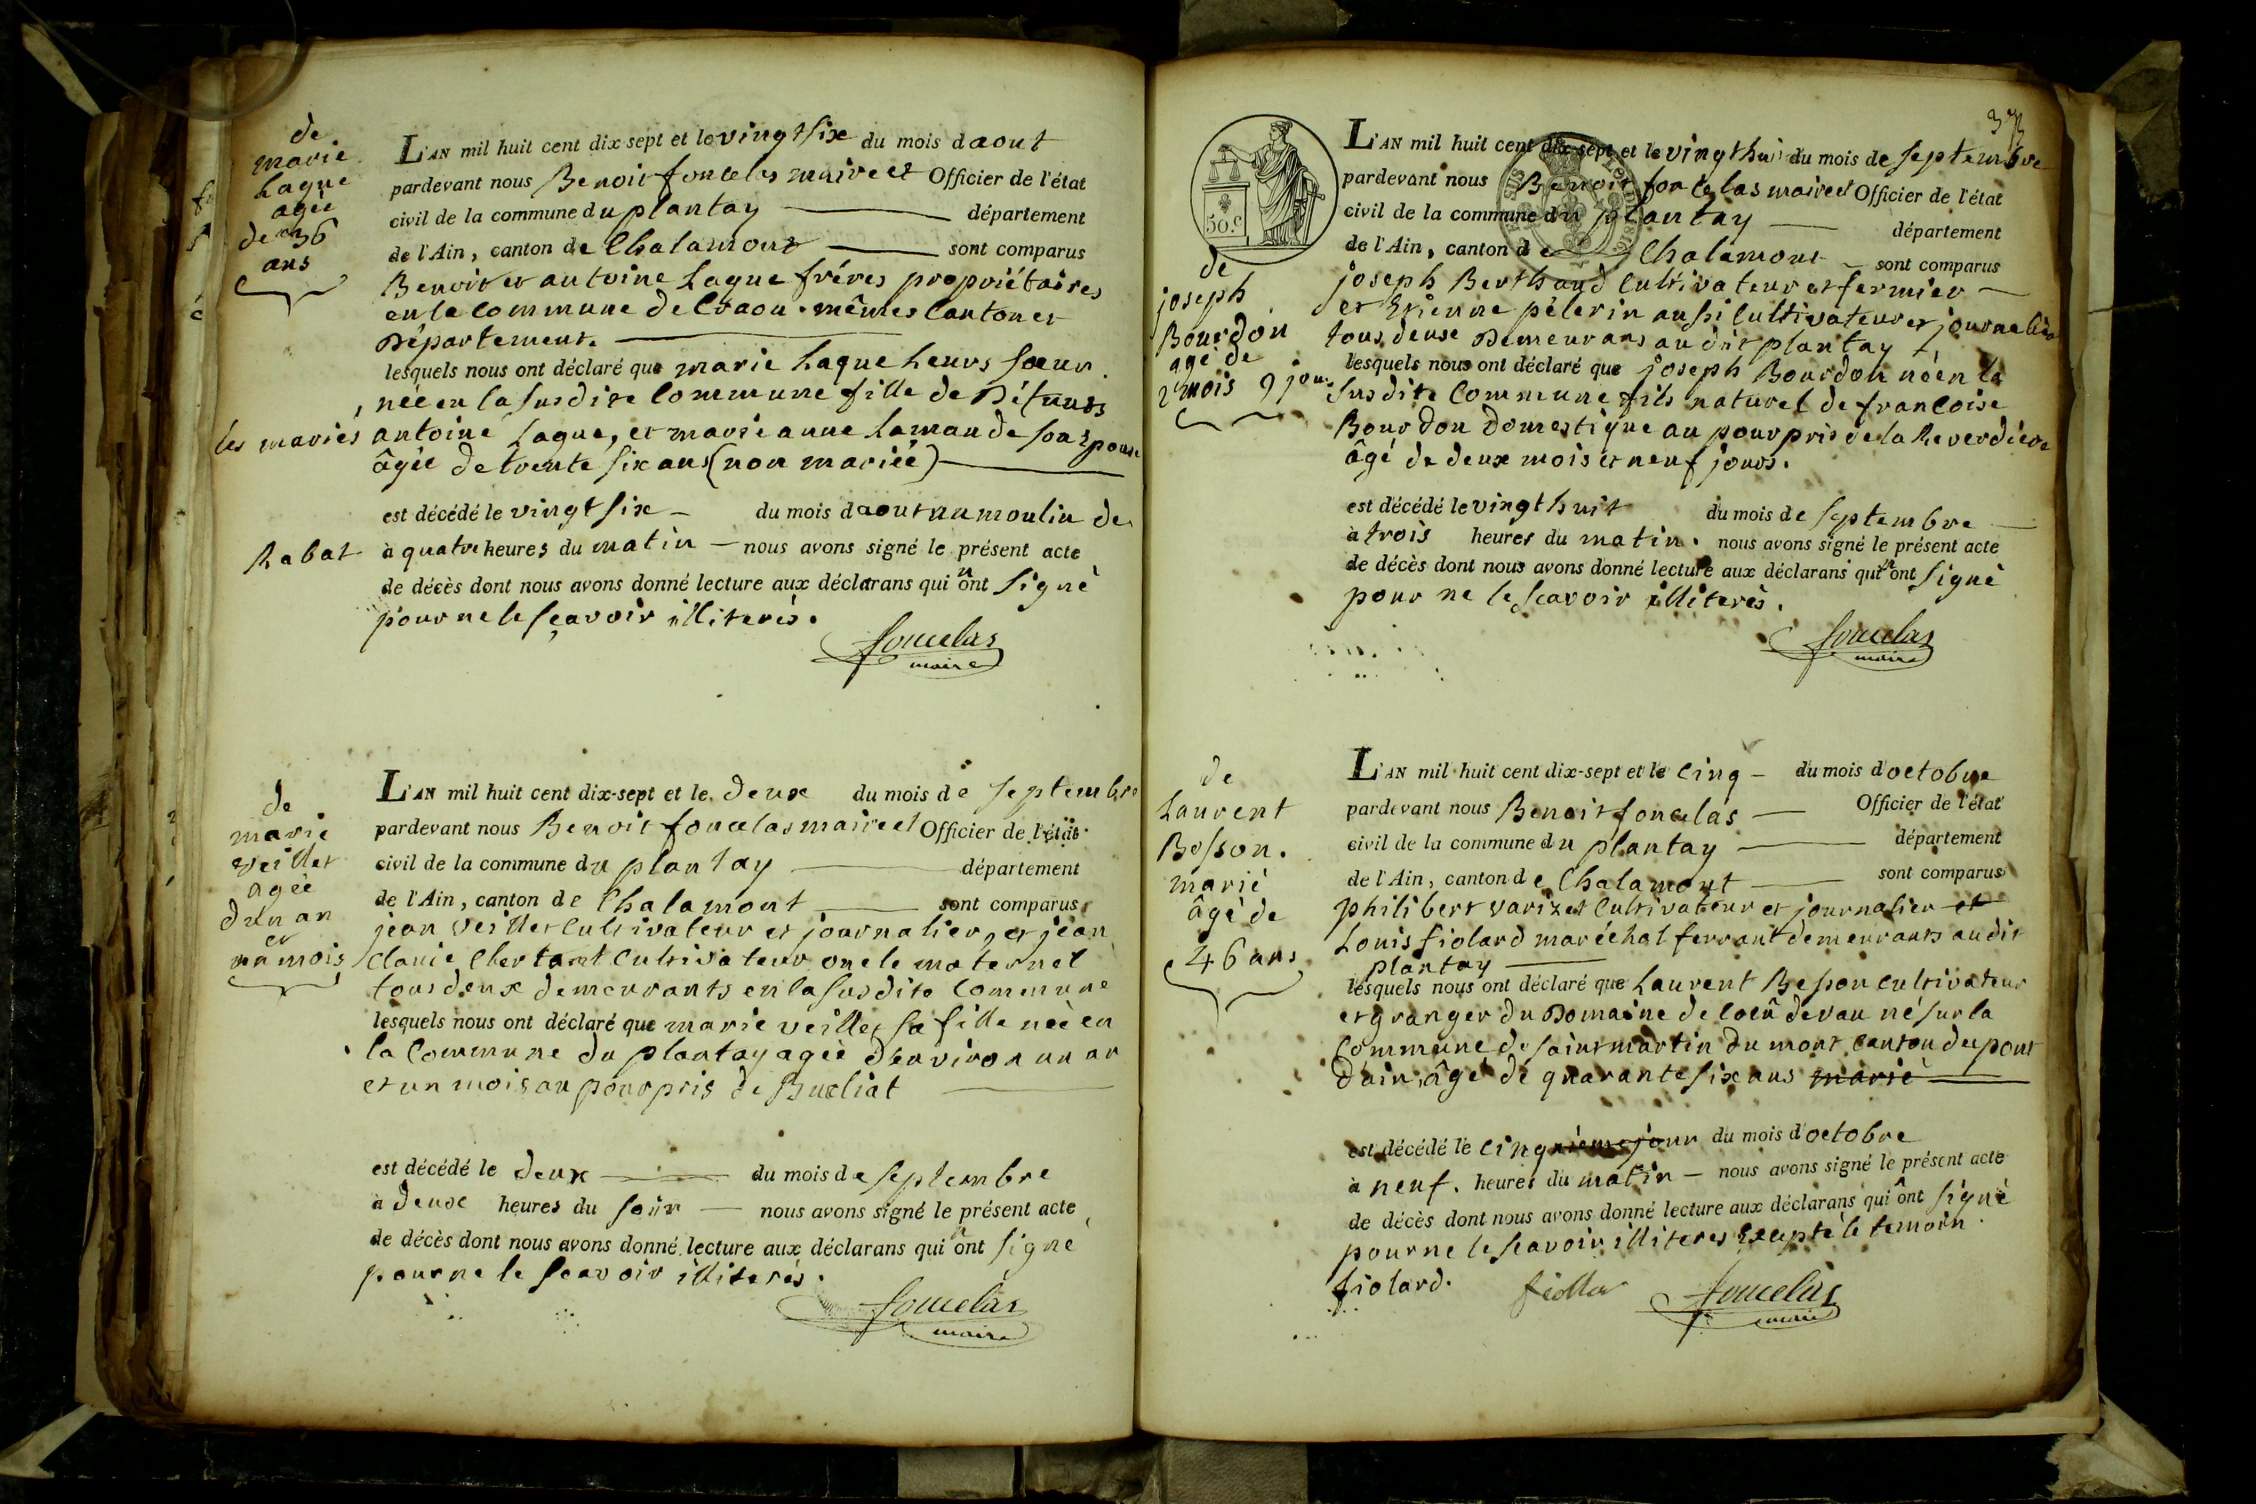 de
marie
Laque
agée
de 36
ans
L'AN mil huit cent dix-sept et le vingt six du mois d aout
pardevant nous Benoit foncelas maire et Officier de l'état
civil de la commune du plantay département
de l'Ain, canton de Chalamont sont comparus
Benoit et antoine Laque fréres propriétaires
en la Commune de mêmes Canton et
Département.
lesquels nous ont déclaré que marie Laque leurs sœur
née en la susdite Commune fille de Défunts
les mariés antoine Laque, et marie anne Lamande son Epouse
âgée de trente six ans (non mariée)
est décédé le vingt six du mois d aout au moulin de
Rabat à quatre heures du matin nous avons signé le présent acte
de décès dont nous avons donné lecture aux déclarans qui n'ont signé
pour ne le sçavoir illiterés.
foncelas
maire
de
marie
veillet
agée
d'un an
et
un mois
L'AN mil huit cent dix-sept et le deux du mois de septembre
pardevant nous Benoit foncelas maire et Officier de l'état
civil de la commune du plantay département
de l'Ain, canton de Chalamont sont comparus
jean veillet Cultivateur et journalier, et jean
Claude Cultivateur oncle maternel
tous deux demeurants en la susdite Commune
lesquels nous ont déclaré que marie veillet sa fille née en
la Commune du plantay agée d'environ un an
et un mois au pourpris de
est décédé le deux du mois de septembre
à deux heures du soir nous avons signé le présent acte
de décès dont nous avons donné lecture aux déclarans qui n'ont signé
pour ne le sçavoir illiterés.
foncelas
maire
50.c
L'AN mil huit cent dix-sept et le vingt huit du mois de septembre
pardevant nous Benoit foncelas maire et Officier de l'état
civil de la commune du plantay département
de l'Ain, canton de Chalamont sont comparus
de
joseph
Bourdon
agé de
2 mois 9 jours
joseph Berthaud Cultivateur et fermier
et Etienne pélerin aussi Cultivateur et journalier
tous deux Demeurans au dit plantay
lesquels nous ont déclaré que joseph Bourdon né en la
susdite Commune fils naturel de francoise
Bourdon Domestique au pourpris de la Reverdière
âgé de deux mois et neuf jours.
est décédé le vingt huit du mois de septembre
à trois heures du matin. nous avons signé le présent acte
de décès dont nous avons donné lecture aux déclarans qui n'ont signé
pour ne le sçavoir illiterés.
foncelas
maire
de
Laurent
Besson.
marié
âgé de
46 ans
L'AN mil huit cent dix-sept et le cinq du mois d'octobre
pardevant nous Benoit foncelas Officier de l'état
civil de la commune du plantay département
de l'Ain, canton de Chalamont sont comparus
philibert varizet Cultivateur et journalier et
Louis fiolard maréchal ferrant demeurants au dit
plantay
lesquels nous ont déclaré que Laurent Besson Cultivateur
et granger du Domaine de né sur la
Commune de saint martin du mont Canton du pont
d'ain, âgé de quarante six ans marié
est décédé le cinquième jour du mois d'octobre
à neuf. heures du matin nous avons signé le présent acte
de décès dont nous avons donné lecture aux déclarans qui n'ont signé
pour ne le sçavoir illiteres Excepté le temoin
fiolard.
foncelas
maire